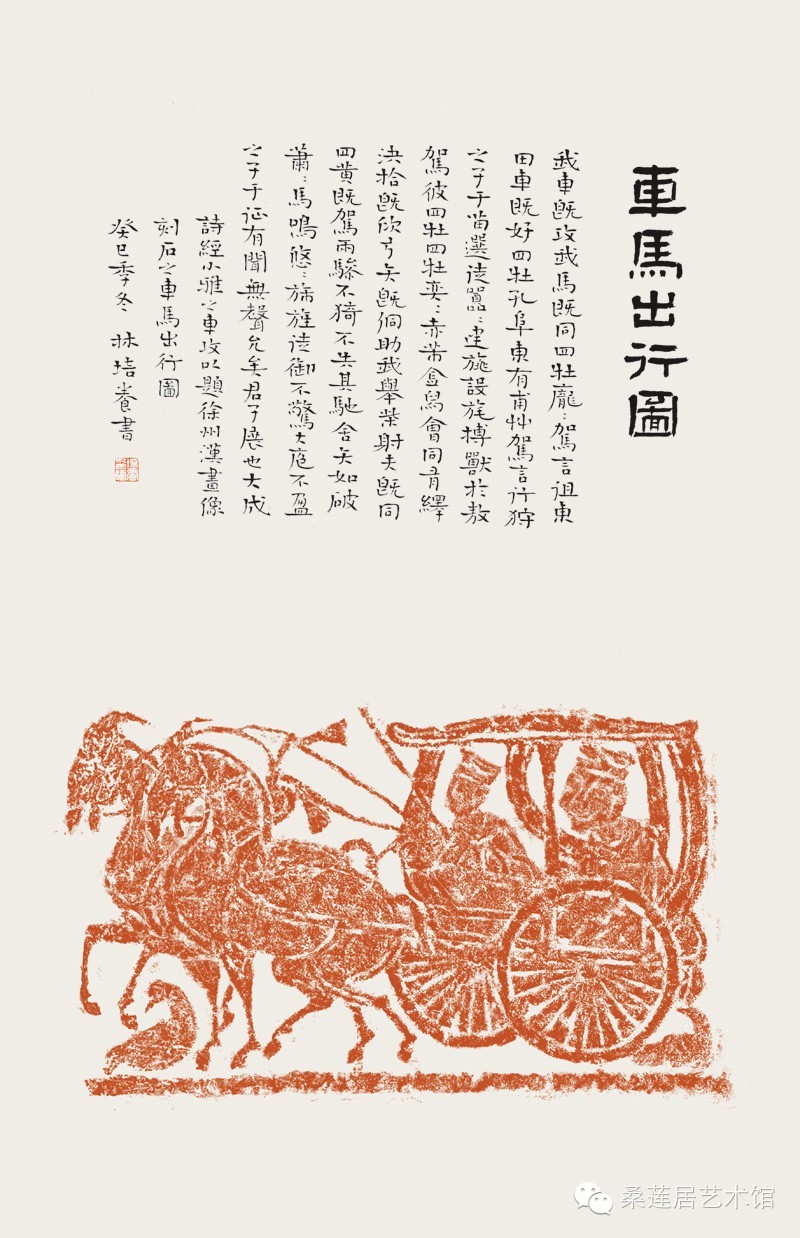 車馬出行圖
我車既攻我馬既同四牡龐:駕言徂東
田車既好四牡孔阜東有甫艸駕言行狩
之子于苗選徒囂:建旐設旄搏獸於敖
駕彼四牡四牡奕:赤芾金舄會同有繹
決拾既佽弓矢既侗助我舉柴射夫既同
四黃既駕兩驂不猗不失其馳舍矢如破
蕭:馬鳴悠:旆旌徒御不驚大庖不盈
之子于征有聞無聲允矣君子展也大成
詩經小雅之車攻以題徐州漢畫像
刻石之車馬出行圖
癸巳季冬 林培養書
桑莲居艺术馆